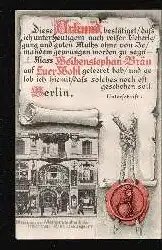 Diese Urkund, bestätiget, daß
ich unterfertigtem nach reifer Ueberle-
gung und guten Muths ohne von Je-
mandem gezwungen worden zu sein
1 Mass Weihenstephan-Bräu
auf Euer Wohl geleeret hab, und ge-
lob ich hiemit, dass solches noch oft
geschehen soll.
Berlin,
Unterschrift: